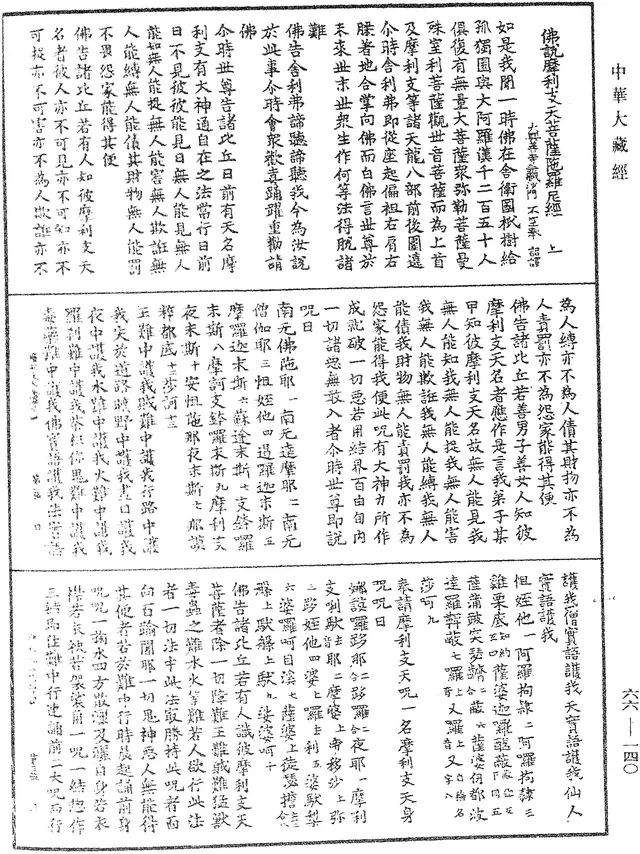 中華大藏經
佛說摩利支天菩薩陁羅尼經 上
大興善寺三藏沙門不空奉 詔譯
如是我聞一時佛在舍衛國祇樹給
孤獨園與大阿羅漢千二百五十人
俱復有無量大菩薩衆弥勒菩薩曼
殊室利菩薩觀世音菩薩而為上首
及摩利支等諸天龍八部前後圍遶
尒時舍利弗即從座起偏袒右肩右
膝著地合掌向佛而白佛言世尊於
未來世末世衆生作何等法得脫諸
難
佛告舍利弗諦聽諦聽我今為汝說
於此事尒時會衆歡喜踊躍重勸請
佛
尒時世尊告諸比丘日前有天名摩
利支有大神通自在之法常行日前
日不見彼彼能見日無人能見無人
能知無人能捉無人能害無人欺誑無
人能縛無人能債其財物無人能罰
不畏怨家能得其便
佛告諸比丘若有人知彼摩利支天
名者彼人亦不可見亦不可知亦不
可捉亦不可害亦不為人欺誑亦不
為人縛亦不為人債其財物亦不為
人責罰亦不為怨家能得其便
佛告諸比丘若善男子善女人知彼
摩利支天名者應作是言我弟子某
甲知彼摩利支天名故無人能見我
無人能知我無人能捉我無人能害
我無人能欺誑我無人能縛我無人
能債我財物無人能責罰我亦不為
怨家能得我便此呪有大神力所作
成就破一切惡若用結界百由旬內
一切諸惡無敢入者尒時世尊即說
呪曰
南无佛陁耶一南无達摩耶二南无
僧伽耶三怛姪他四遏羅迦末斯五
摩羅迦末斯六蘇途末斯七支鉢羅
末斯八摩訶支鉢羅末斯九摩利支
夜末斯十安怛陁那夜末斯十一那謨
粹都底十二莎訶十三
王難中護我賊難中護我行路中護
我失於道路曠野中護我晝日護我
夜中護我水難中護我火難中護我
羅刹難中護我荼枳你鬼難中護我
毒藥難中護我佛實語護我法實語
護我僧實語護我天實語護我仙人
實語護我
怛姪他一阿羅拘隷二阿羅拘隷三
莎訶九
奉請摩利支天呪一名摩利支天身
呪呪曰
佛告諸比丘若有人識彼摩利支天
菩薩者除一切障難王難賊難猛獸
毒蟲之難水火等難若人欲行此法
者一切法中此法㝡勝持此呪者面
向百踰闍那一切鬼神惡人無能得
其便者若於難中行時晨起誦前身
呪呪一掬水四方散灑及灑自身若衣
襟若衣袂若袈裟角一呪一結惣作
三結即往難中行連誦前二大呪而行
六六—一四〇